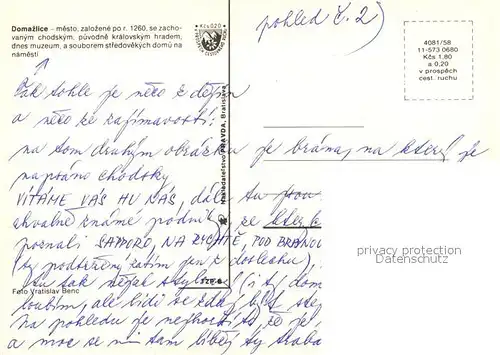 Domažlice – město, založené po r. 1260, se zacho-
vaným chodským, původně královským hradem,
dnes muzeum, a souborem středověkých domů na
náměstí
Kčs 0,20
pohled č. 2)
4081/58
11-573 0680
Kčs 1,80
a 0,20
v prospěch
cest. ruchu
Tak tohle je něco z dějin
a něco ze zajímavostí:
na tom druhým obrázku je brána, na který je
napsáno chodsky
VÍTÁME VÁS HU NÁS, dále tu jsou
chvalně známé podniky, ze
poznali SAPPORO, NA RYCHTĚ, POD BRÁNOU
(ty podtržený zatím jen z doslechu)
jsou tak nějak (i ty dom
loubím, ale lidi se zdaj být
Na pohledu je nejhorší to, že je
a moc se nám tam líběj ty
Nakladatelstvo PRAVDA, Bratislava
Foto Vratislav Benc
privacy protection
Datenschutz